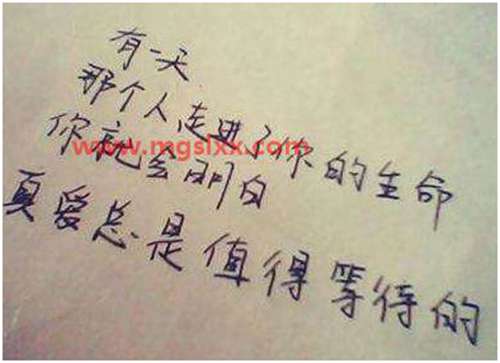 有一天
那个人走进了你的生命
www.mgslxx.com
你就会明白
真爱总是值得等待的